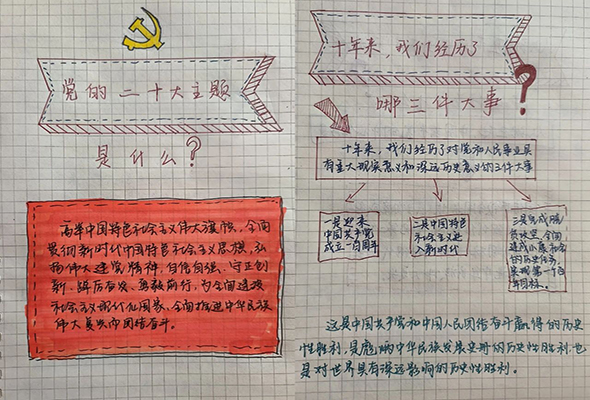 党的二十大主题
是什么?
高举中国特色社会主义伟大旗帜,全面
贯彻新时代中国特色社会主义思想,弘
扬伟大建党精神,自信自强、守正创
新,踔厉奋发、勇毅前行,为全面建设
社会主义现代化国家、全面推进中华民族
伟大复兴而团结奋斗。
十年来,我们经历了
哪三件大事?
十年来,我们经历了对党和人民事业具
有重大现实意义和深远历史意义的三件大事
一是迎来
中国共产党
成立一百周年
二是中国特色
社会主义进
入新时代
三是完成脱
贫攻坚、全面
建成小康社会
的历史任务,
实现第一个百
年目标。
这是中国共产党和中国人民团结奋斗赢得的历史
性胜利,是彪炳中华民族发展史册的历史性胜利,也
是对世界具有深远影响的历史性胜利。